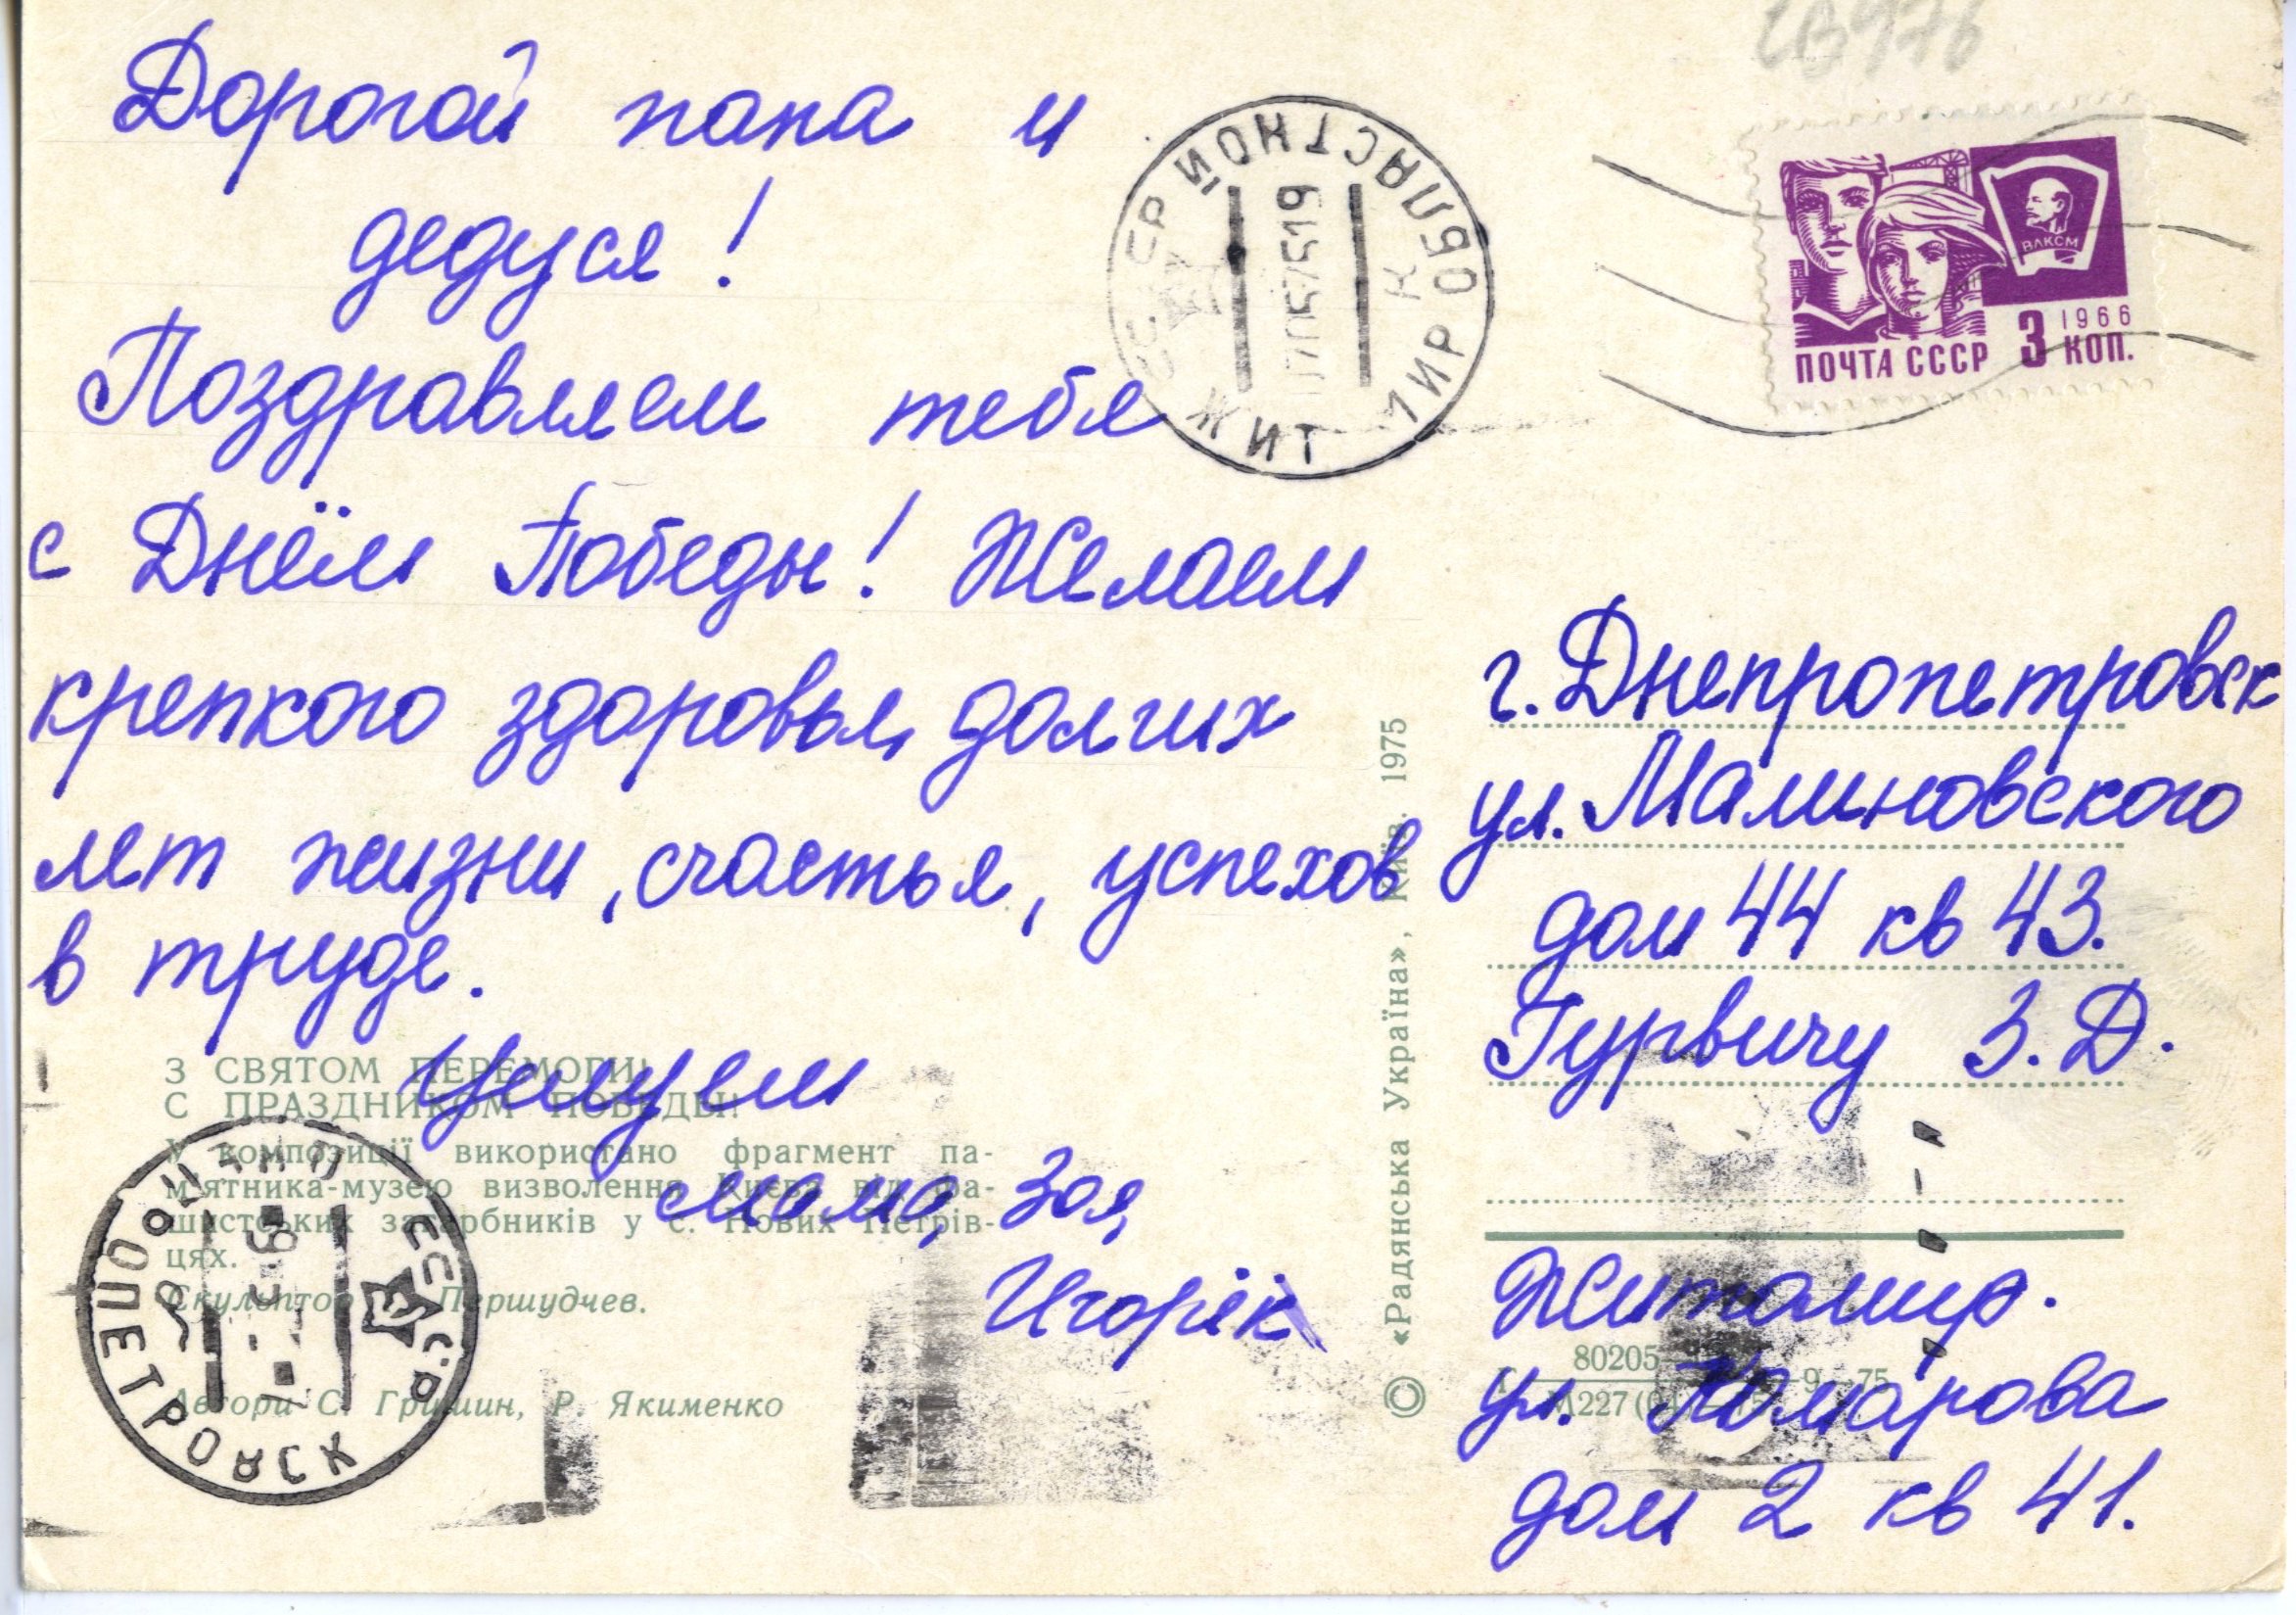 Дорогой папа и
дедуся!
Поздравляем тебя
с Днём Победы! Желаем
крепкого здоровья, долгих
лет жизни, счастья, успехов
в труде.
Целуем
мама, Зоя,
Игорёк
З СВЯТОМ ПЕРЕМОГИ!
С ПРАЗДНИКОМ ПОБЕДЫ!
У композиції використано фрагмент па-
м'ятника-музею визволення Києва від фа-
шистських загарбників у с. Нових Петрів-
цях.
Скульптор Першудчев.
Автори С. Гришин, Р. Якименко
ДНЕПРОПЕТРОВСК
СССР
ЖИТОМИР ОБЛАСТНОЙ
СССР
19
© «Радянська Україна», Київ. 1975
ПОЧТА СССР 3 КОП.
1966
ВЛКСМ
г. Днепропетровск
ул. Малиновского
дом 44 кв 43.
Гурвичу З. Д.
Житомир.
ул. Комарова
дом 2 кв 41.
80205
М227(04)—75
9—75